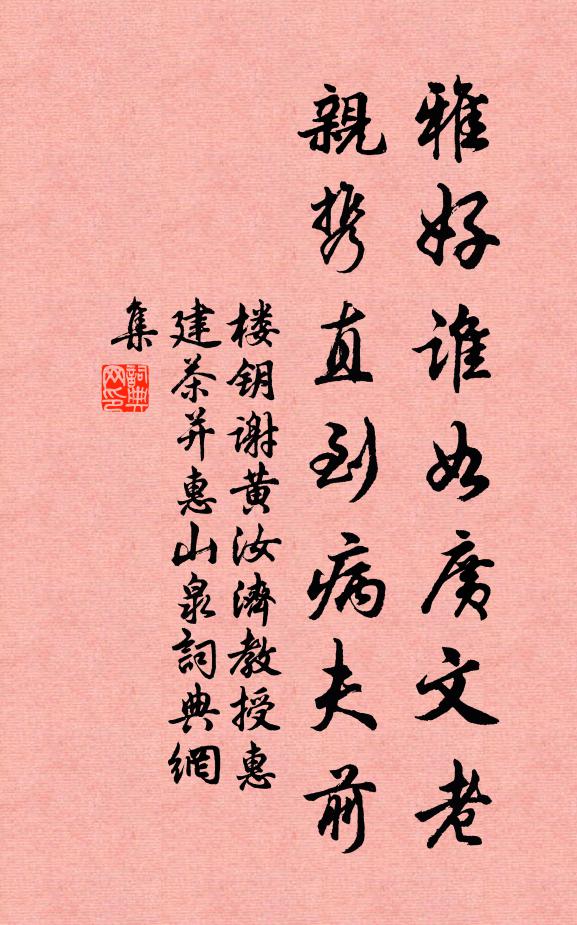 雅好誰如廣文老
親携直到病夫前
楼钥谢黄汝濟教授惠
建茶并惠山泉詞典網
集
詞典
网印